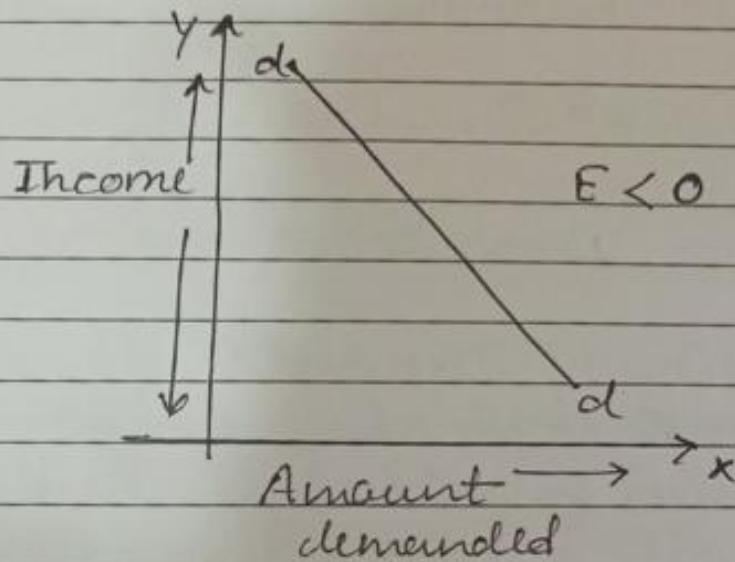 y
d
Income
E < 0
d
x
Amount
demanded